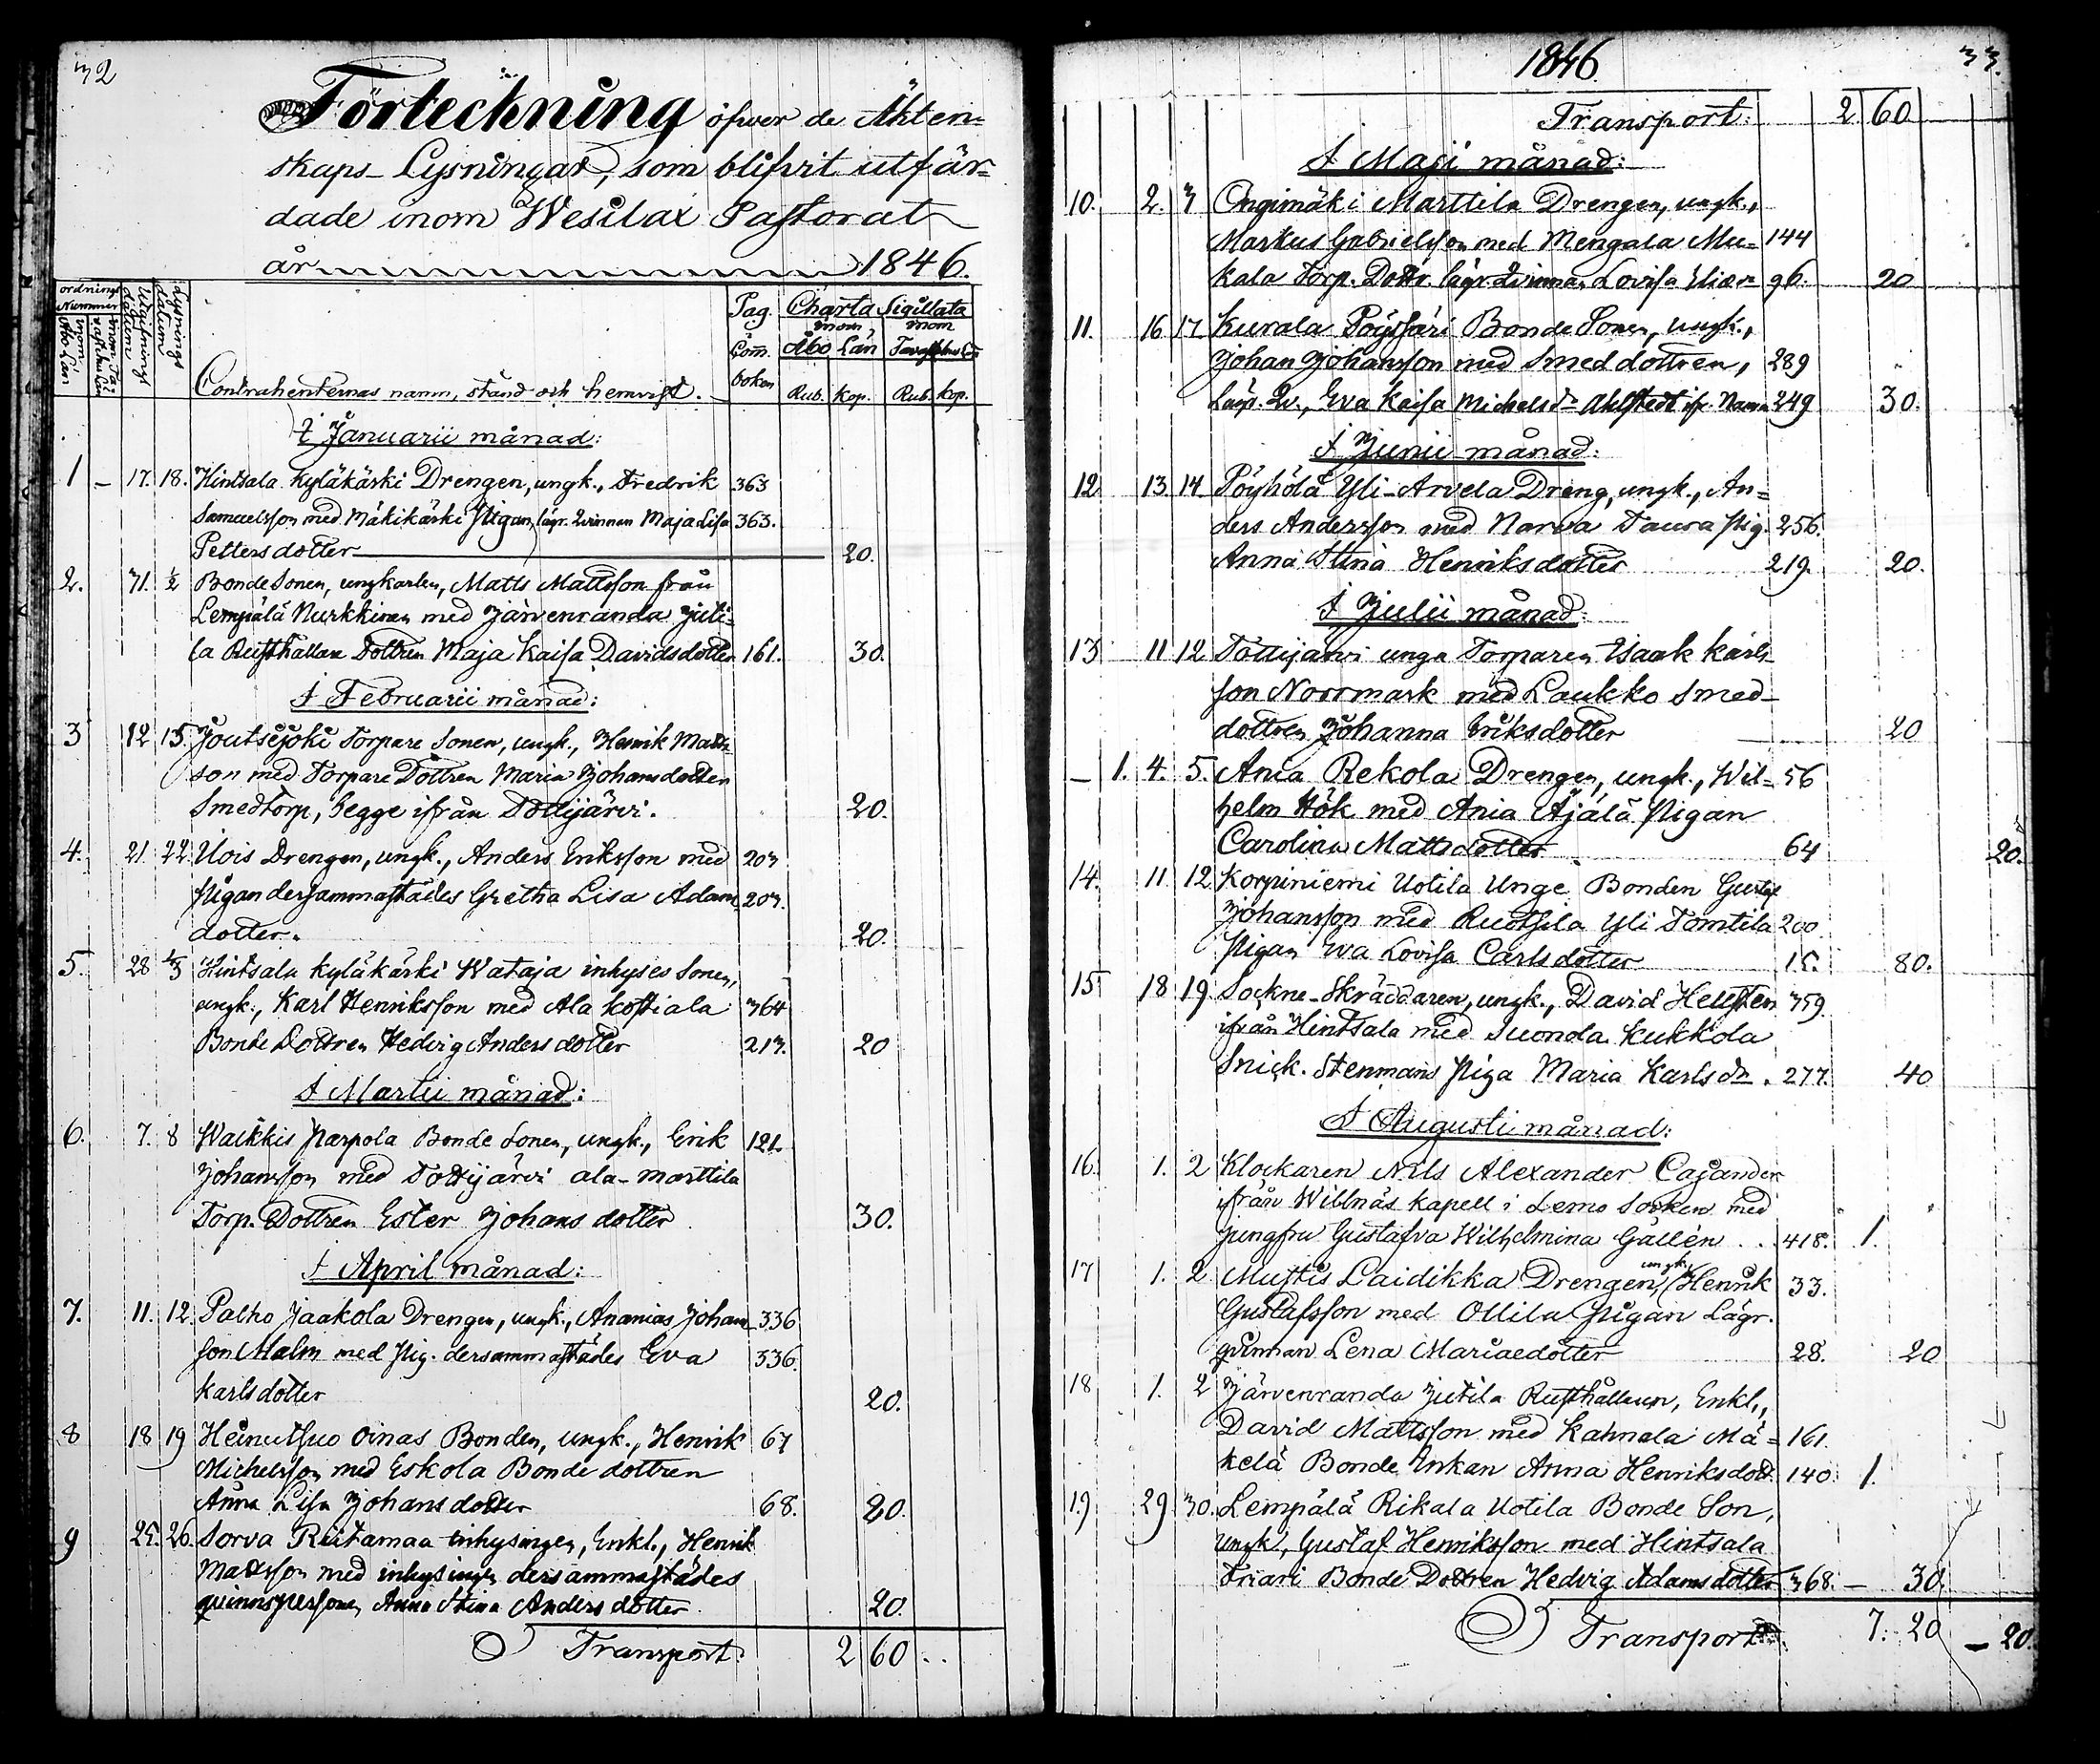 32
Förteckning öfwer de Äkten-
skaps-Lysningar, som blifvit utfär-
dade inom Wesilax Pastorat
år 1846.
ordnings Nummer
inom Åbo Län
Utlysnings datum
Lysnings datum
Contrahenternas namn, stånd och hemvist.
Pag. Com. boken
Charta Sigillata
inom Åbo Län
inom
Rub. Kop. Rub. Kop.
I Januarii månad:
1 - 17. 18. Hintsala Kyläkäski Drengen, ungk., Fredrik 363
Samuelsson med Mäkikäski Pigan, lägr. Qvinnan Maja Lisa 363.
Petters dotter 20.
2. 31. ½ Bonde Sonen, ungkarlen, Matts Mattsson från
Lempälä Nurkkinen med Järvenranda Juti-
la Rusthållare Dottren Maja Kaisa Davidsdotter 161. 30.
I Februarii månad:
3 12 15. Joutsijoki Torpare Sonen, ungk., Henrik Matts
son med Torpare Dottren Maria Johansdotter
Smedtorp, begge ifrån Tottijärvi. 20.
4. 21 22 Uois Drengen, ungk., Anders Eriksson med 203
Pigan dersammastädes Gretha Lisa Adams 203.
dotter. 20.
5. 28 1/3 Hintsala Kyläkäski Wataja inhyses Sonen,
ungk., Karl Henriksson med Ala Kostiala 364
Bonde Dottren Hedvig Anders dotter 213. 20
I Martii månad:
6. 7. 8 Wakkis Parpola Bonde Sonen, ungk., Erik 121.
Johansson med Tottijärvi ala-marttila
Torp. Dottren Ester Johans dotter 30.
I April månad:
7. 11. 12 Palho Jaakola Drengen, ungk., Ananias Johans 336
son Malm med Pig. dersammastädes Eva 336.
Karlsdotter 20.
8 18 19 Heinutsuo Oinas Bonden, ungk., Henrik 67
Michelsson med Eskola Bonde dottren
Anna Lisa Johansdotter 68. 20.
9 25. 26. Sorva Reitamaa inhysingen, Enkl., Henrik
Mattsson med inhysingen dersammastädes
qvinnspersonen Anna Stina Anders dotter 20.
Transport: 2 60
1846
33.
Transport: 2. 60
I Maji månad:
10. 2. 3 Ongimäki Marttila Drengen, ungk.,
Markus Gabrielsson med Mengala Mu- 144
kala Torp. Dottr. lägr. Qvinnan Lovisa 96. 20
11. 16 17. Kurala Pöyssäri Bonde Sonen, ungk.,
Johan Johansson med Smed dottren, 289
Lägr. Qv., Eva Kaisa Michelsdr Ahlstedt ifr. Narva 249 30.
I Junii månad:
12. 13 14 Pöyhölä Yli-Arvela Dreng, ungk., An-
ders Andersson med Narva Taura Pig. 256.
Anna Stina Henriksdotter 219. 20.
I Julii månad:
13 11 12 Tottijärvi unga Torparen Isaak Karls-
son Norrmark med Laukko Smed-
dottren Johanna Eriksdotter 20
- 1. 4. 5. Ania Rekola Drengen, ungk., Wil- 56
helm Hök med Ania Äjälä Pigan
Carolina Mattsdotter 64 20.
14. 11 12 Korpiniemi Uotila Unge Bonden Gustaf
Johansson med Ruotsila Yli Tomtila 200
Pigan Eva Lovisa Carlsdotter 15. 80.
15 18 19. Sockne-Skräddaren, ungk., David Hellsten 359.
ifrån Hintsala med Suonda Kukkola
Snick. Stenmans Piga Maria Karlsdr. 277. 40
I Augusti månad:
16. 1. 2 Klockaren Nils Alexander Cajander
ifrån Willnäs Kapell i Lemo Socken med
Jungfru Gustafva Wilhelmina Gallén .. 418. 1.
17 1. 2 Mustis Laidikka Drengen, ungk., Henrik 33.
Gustafsson med Ollila Pigan Lägr.
qvinnan Lena Mariaedotter 28. 20
18 1. 2 Järvenranda Jutila Rusthållaren, Enkl.,
David Mattsson med Kahnala Mä- 161.
kelä Bonde Enkan Anna Henriksdott. 140. 1.
19 29 30. Lempälä Rikala Uotila Bonde Son,
Ungk., Gustaf Henriksson med Hintsala
Friari Bonde Dottren Hedvig Adamsdotter 368. - 30.
Transport: 7. 20 - 20.